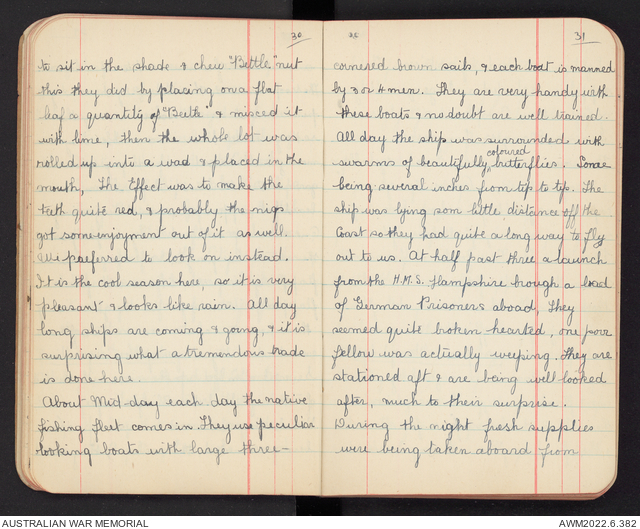 30
to sit in the shade & chew "Bettle" nut
this they did by placing on a flat
leaf a quantity of "Beetle" & mixed it
with lime, then the whole lot was
rolled up into a wad & placed in the
mouth, The Effect was to make the
teeth quite red, & probably the nigs
got some injoyment out of it as well.
We preferred to look on instead.
It is the cool season here, so it is very
pleasant & looks like rain. All day
long ships are coming & going, & it is
surprising what a tremendous trade
is done here.
About Mid-day each day the native
fishing fleet comes in. They use peculiar
looking boats with large three-
31
cornered brown sails, & each boat is manned
by 3 or 4 men. They are very handy with
these boats & no doubt are well trained.
All day the ship was surrounded with
swarms of beautifully coloured butterflies. Some
being several inches from tip to tip. The
ship was lying som little distance off the
Coast so they had quite a long way to fly
out to us. At half past three a launch
from the H.M.S. Hampshire brough a load
of German Prisoners aboad, They
seemed quite broken hearted, one poor
fellow was actually weeping. They are
stationed aft & are being well looked
after, much to their surprise.
During the night fresh supplies
were being taken aboard from
AUSTRALIAN WAR MEMORIAL
AWM2022.6.382